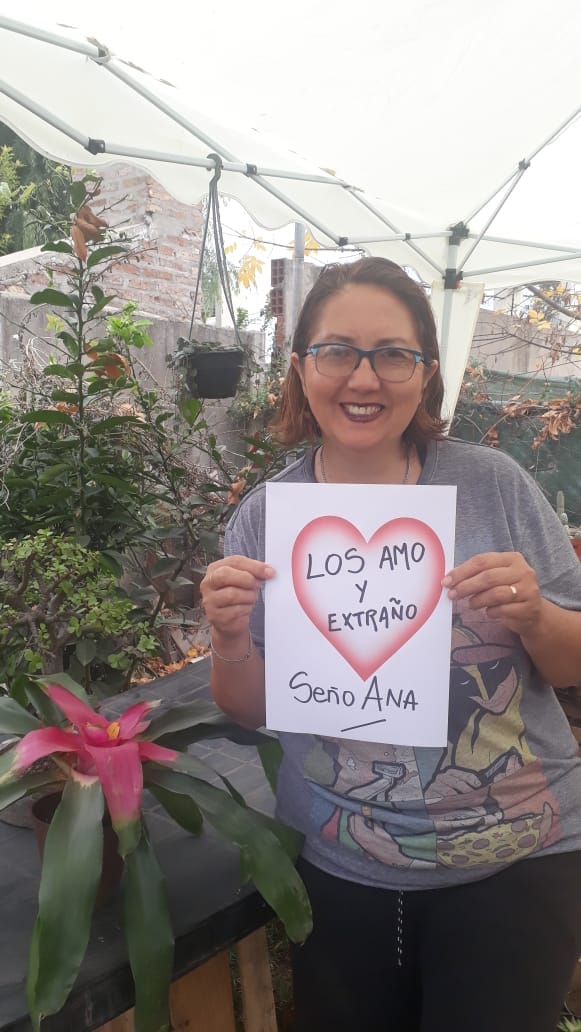 LOS AMO
Y
EXTRAÑO
Seño ANA